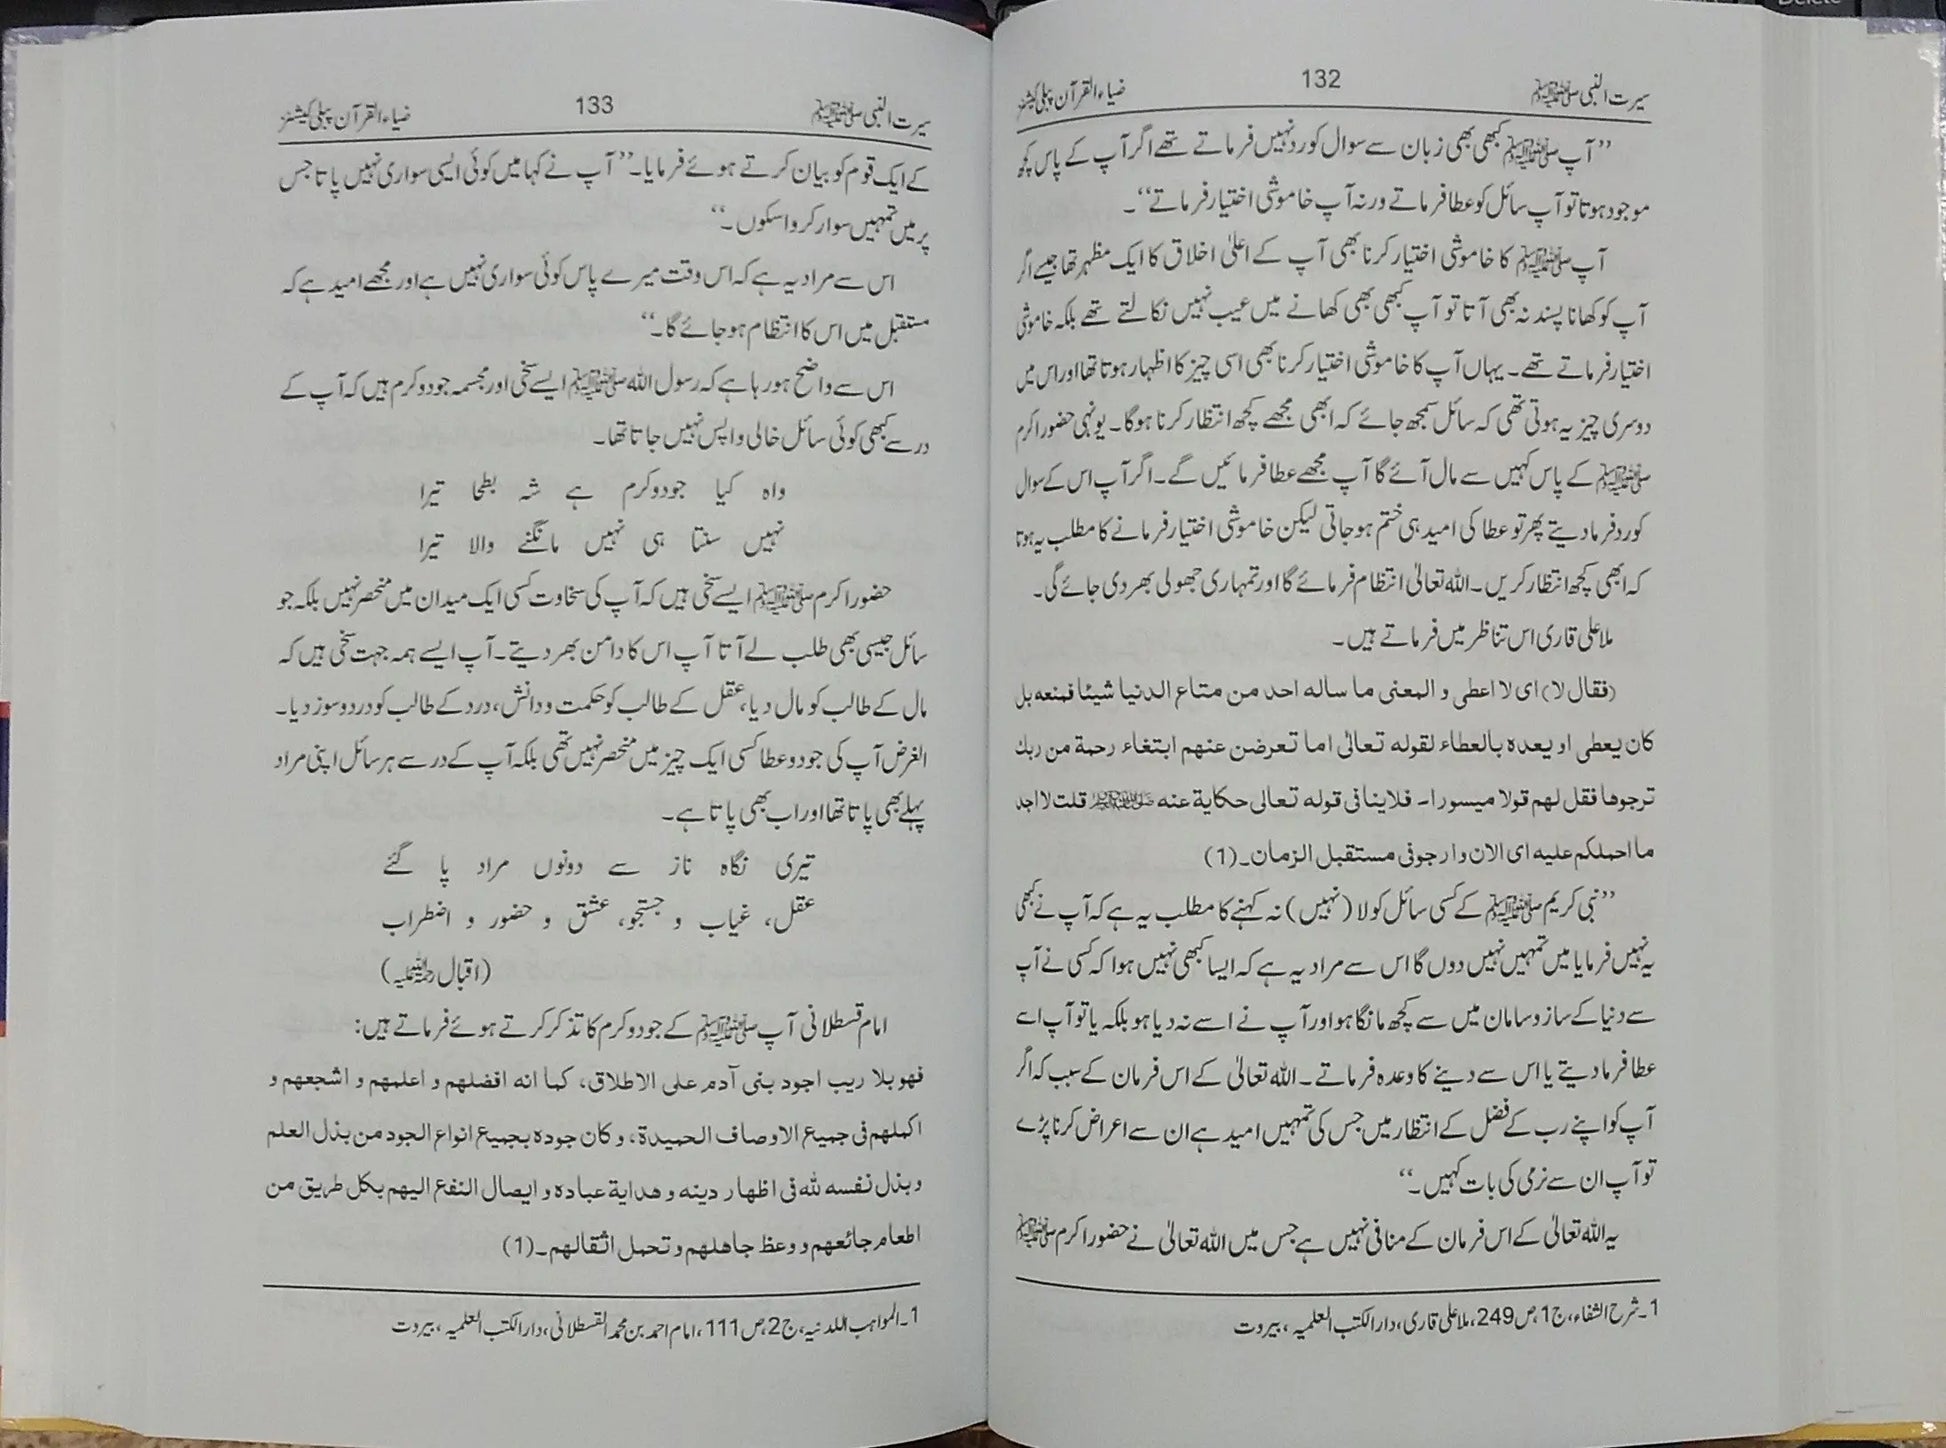 سیرت النبی ﷺ 132 ضیاء القرآن پبلی کیشنز
’’آپ ﷺ کبھی بھی زبان سے سوال کو رد نہیں فرماتے تھے اگر آپ کے پاس کچھ
موجود ہوتا تو آپ سائل کو عطا فرماتے ورنہ آپ خاموشی اختیار فرماتے‘‘۔
آپ ﷺ کا خاموشی اختیار کرنا بھی آپ کے اعلیٰ اخلاق کا ایک مظہر تھا جیسے اگر
آپ کو کھانا پسند نہ بھی آتا تو آپ کبھی بھی کھانے میں عیب نہیں نکالتے تھے بلکہ خاموشی
اختیار فرماتے تھے۔ یہاں آپ کا خاموشی اختیار کرنا بھی اسی چیز کا اظہار ہوتا تھا اور اس میں
دوسری چیز یہ ہوتی تھی کہ سائل سمجھ جائے کہ ابھی مجھے کچھ انتظار کرنا ہوگا۔ یونہی حضور اکرم
ﷺ کے پاس کہیں سے مال آئے گا آپ مجھے عطا فرمائیں گے۔ اگر آپ اس کے سوال
کو رد فرما دیتے پھر تو عطا کی امید ہی ختم ہو جاتی لیکن خاموشی اختیار فرمانے کا مطلب یہ ہوتا
کہ ابھی کچھ انتظار کریں۔ اللہ تعالیٰ انتظام فرمائے گا اور تمہاری جھولی بھر دی جائے گی۔
ملا علی قاری اس تناظر میں فرماتے ہیں۔
(فقال لا) ای لا اعطی و المعنی ما ساله احد من متاع الدنیا شیئا فمنعه بل
کان یعطی او یعده بالعطاء لقوله تعالیٰ اما تعرضن عنهم ابتغاء رحمة من ربك
ترجوها فقل لهم قولا میسورا۔ فلاینافی قوله تعالی حکایة عنه ﷺ قلت لا اجد
ما احملکم علیه ای الان وارجوفی مستقبل الزمان۔(1)
’’نبی کریم ﷺ کے کسی سائل کو لا (نہیں) نہ کہنے کا مطلب یہ ہے کہ آپ نے کبھی
یہ نہیں فرمایا میں تمہیں نہیں دوں گا اس سے مراد یہ ہے کہ ایسا کبھی نہیں ہوا کہ کسی نے آپ
سے دنیا کے ساز و سامان میں سے کچھ مانگا ہو اور آپ نے اسے نہ دیا ہو بلکہ یا تو آپ اسے
عطا فرما دیتے یا اس سے دینے کا وعدہ فرماتے۔ اللہ تعالیٰ کے اس فرمان کے سبب کہ اگر
آپ کو اپنے رب کے فضل کے انتظار میں جس کی تمہیں امید ہے ان سے اعراض کرنا پڑے
تو آپ ان سے نرمی کی بات کہیں۔‘‘
یہ اللہ تعالیٰ کے اس فرمان کے منافی نہیں ہے جس میں اللہ تعالیٰ نے حضور اکرم ﷺ
1۔ شرح الشفاء، ج1، ص249، ملا علی قاری، دار الکتب العلمیہ، بیروت
سیرت النبی ﷺ 133 ضیاء القرآن پبلی کیشنز
کے ایک قوم کو بیان کرتے ہوئے فرمایا۔ ’’آپ نے کہا میں کوئی ایسی سواری نہیں پاتا جس
پر میں تمہیں سوار کروا سکوں۔‘‘
اس سے مراد یہ ہے کہ اس وقت میرے پاس کوئی سواری نہیں ہے اور مجھے امید ہے کہ
مستقبل میں اس کا انتظام ہو جائے گا۔‘‘
اس سے واضح ہو رہا ہے کہ رسول اللہ ﷺ ایسے سخی اور مجسمہ جود و کرم ہیں کہ آپ کے
در سے کبھی کوئی سائل خالی واپس نہیں جاتا تھا۔
واہ کیا جود و کرم ہے شہ بطحا تیرا
نہیں سنتا ہی نہیں مانگنے والا تیرا
حضور اکرم ﷺ ایسے سخی ہیں کہ آپ کی سخاوت کسی ایک میدان میں منحصر نہیں بلکہ جو
سائل جیسی بھی طلب لے آتا آپ اس کا دامن بھر دیتے۔ آپ ایسے ہمہ جہت سخی ہیں کہ
مال کے طالب کو مال دیا، عقل کے طالب کو حکمت و دانش، درد کے طالب کو درد و سوز دیا۔
الغرض آپ کی جود و عطا کسی ایک چیز میں منحصر نہیں تھی بلکہ آپ کے در سے ہر سائل اپنی مراد
پہلے بھی پاتا تھا اور اب بھی پاتا ہے۔
تیری نگاہ ناز سے دونوں مراد پا گئے
عقل، غیاب و جستجو، عشق و حضور و اضطراب
(اقبال رحمۃ اللہ علیہ)
امام قسطلانی آپ ﷺ کے جود و کرم کا تذکر کرتے ہوئے فرماتے ہیں:
فهو بلا ریب اجود بنی آدم علی الاطلاق، کما انه افضلهم و اعلمهم و اشجعهم و
اکملهم فی جمیع الاوصاف الحمیدة، و کان جوده بجمیع انواع الجود من بذل العلم
و بذل نفسه لله فی اظهار دینه و هدایة عباده و ایصال النفع الیهم بکل طریق من
اطعام جائعهم و وعظ جاهلهم و تحمل اثقالهم۔(1)
1۔ المواہب اللدنیہ، ج2، ص111، امام احمد بن محمد القسطلانی، دار الکتب العلمیہ، بیروت
Delete